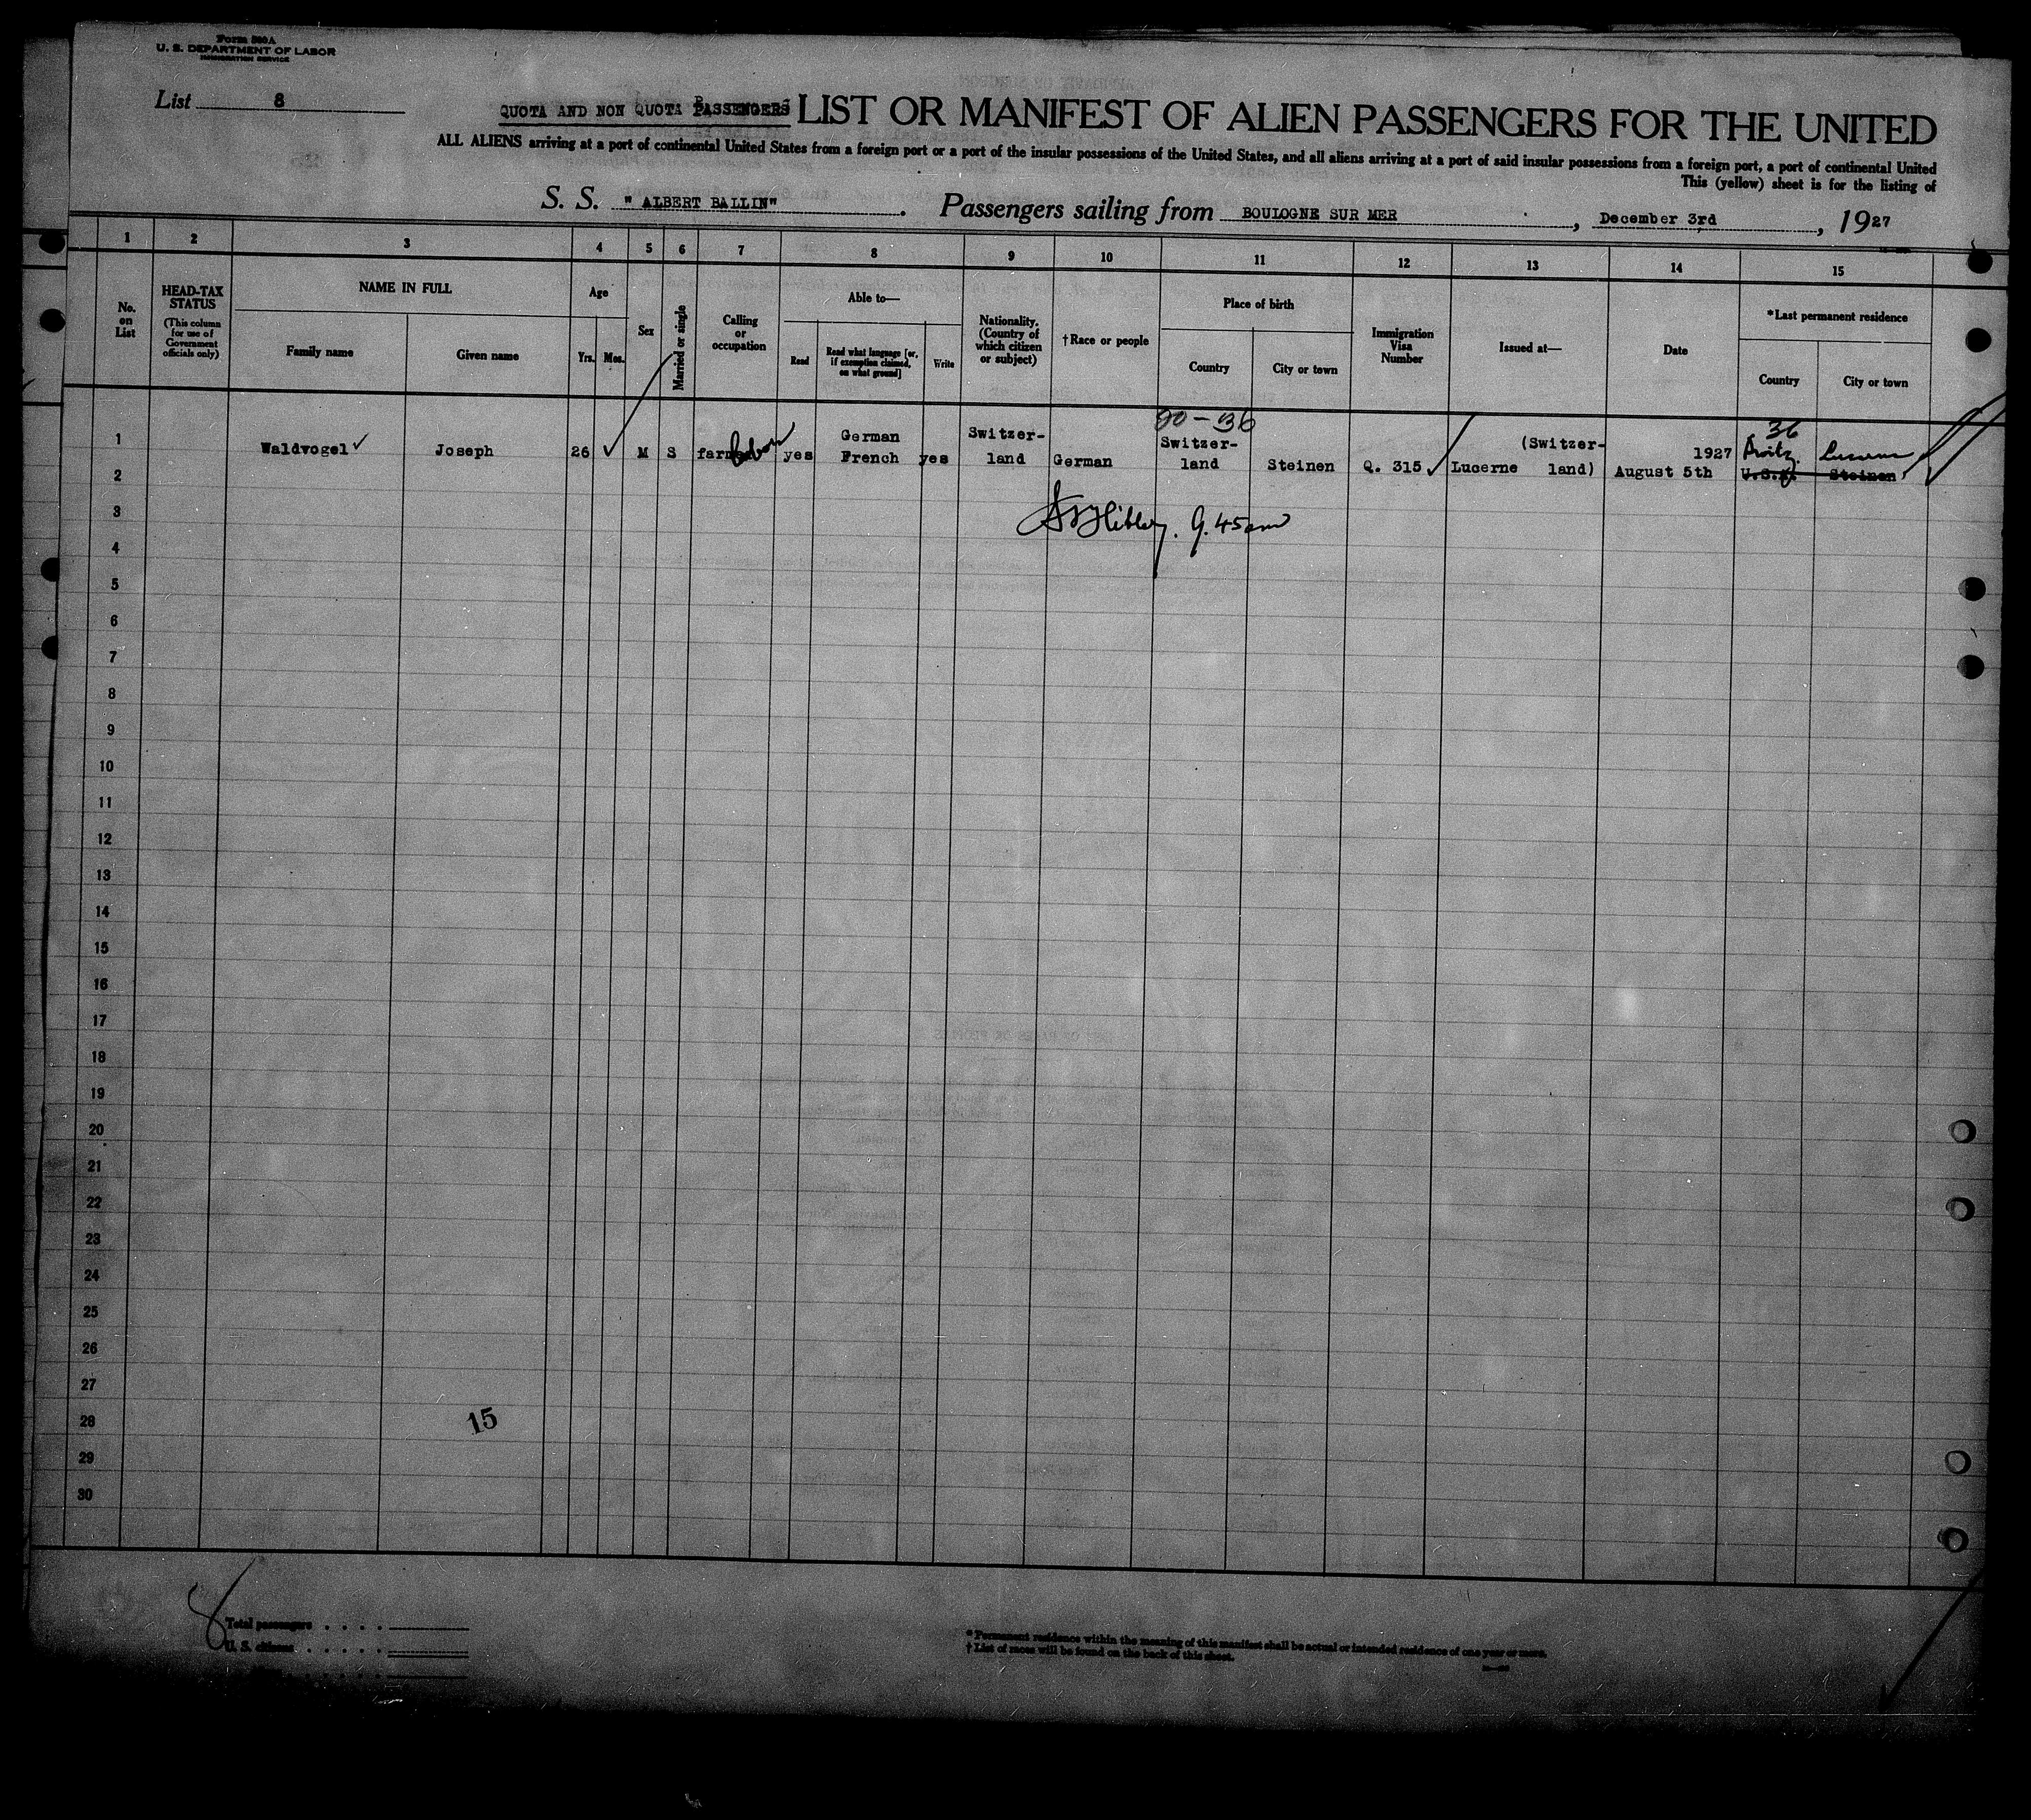 Form 500A
U. S. DEPARTMENT OF LABOR
IMMIGRATION SERVICE
List 8
QUOTA AND NON QUOTA PASSENGERS LIST OR MANIFEST OF ALIEN PASSENGERS FOR THE UNITED
ALL ALIENS arriving at a port of continental United States from a foreign port or a port of the insular possessions of the United States, and all aliens arriving at a port of said insular possessions from a foreign port, a port of continental United
This (yellow) sheet is for the listing of
S. S. " ALBERT BALLIN" . Passengers sailing from BOULOGNE SUR MER , December 3rd , 1927
1 2 3 4 5 6 7 8 9 10 11 12 13 14 15
No. on List
HEAD-TAX STATUS
(This column for use of Government officials only)
NAME IN FULL
Family name
Given name
Age
Yrs. Mos.
Sex
Married or single
Calling or occupation
Able to—
Read
Read what language [or, if exemption claimed, on what ground]
Write
Nationality. (Country of which citizen or subject)
†Race or people
Place of birth
Country
City or town
Immigration Visa Number
Issued at—
Date
*Last permanent residence
Country
City or town
90-36
36
1 Waldvogel ✓ Joseph 26 ✓ M S yes German French yes Switzer-land German Switzer-land Steinen Q. 315 ✓ Lucerne (Switzer-land) 1927 August 5th U.S.A. Steinen
2
3
9.45 am
4
5
6
7
8
9
10
11
12
13
14
15
16
17
18
19
20
21
22
23
24
25
26
27
28
15
29
30
Total passengers . . . .
U. S. citizens . . . . .
* Permanent residence within the meaning of this manifest shall be actual or intended residence of one year or more.
† List of races will be found on the back of this sheet.